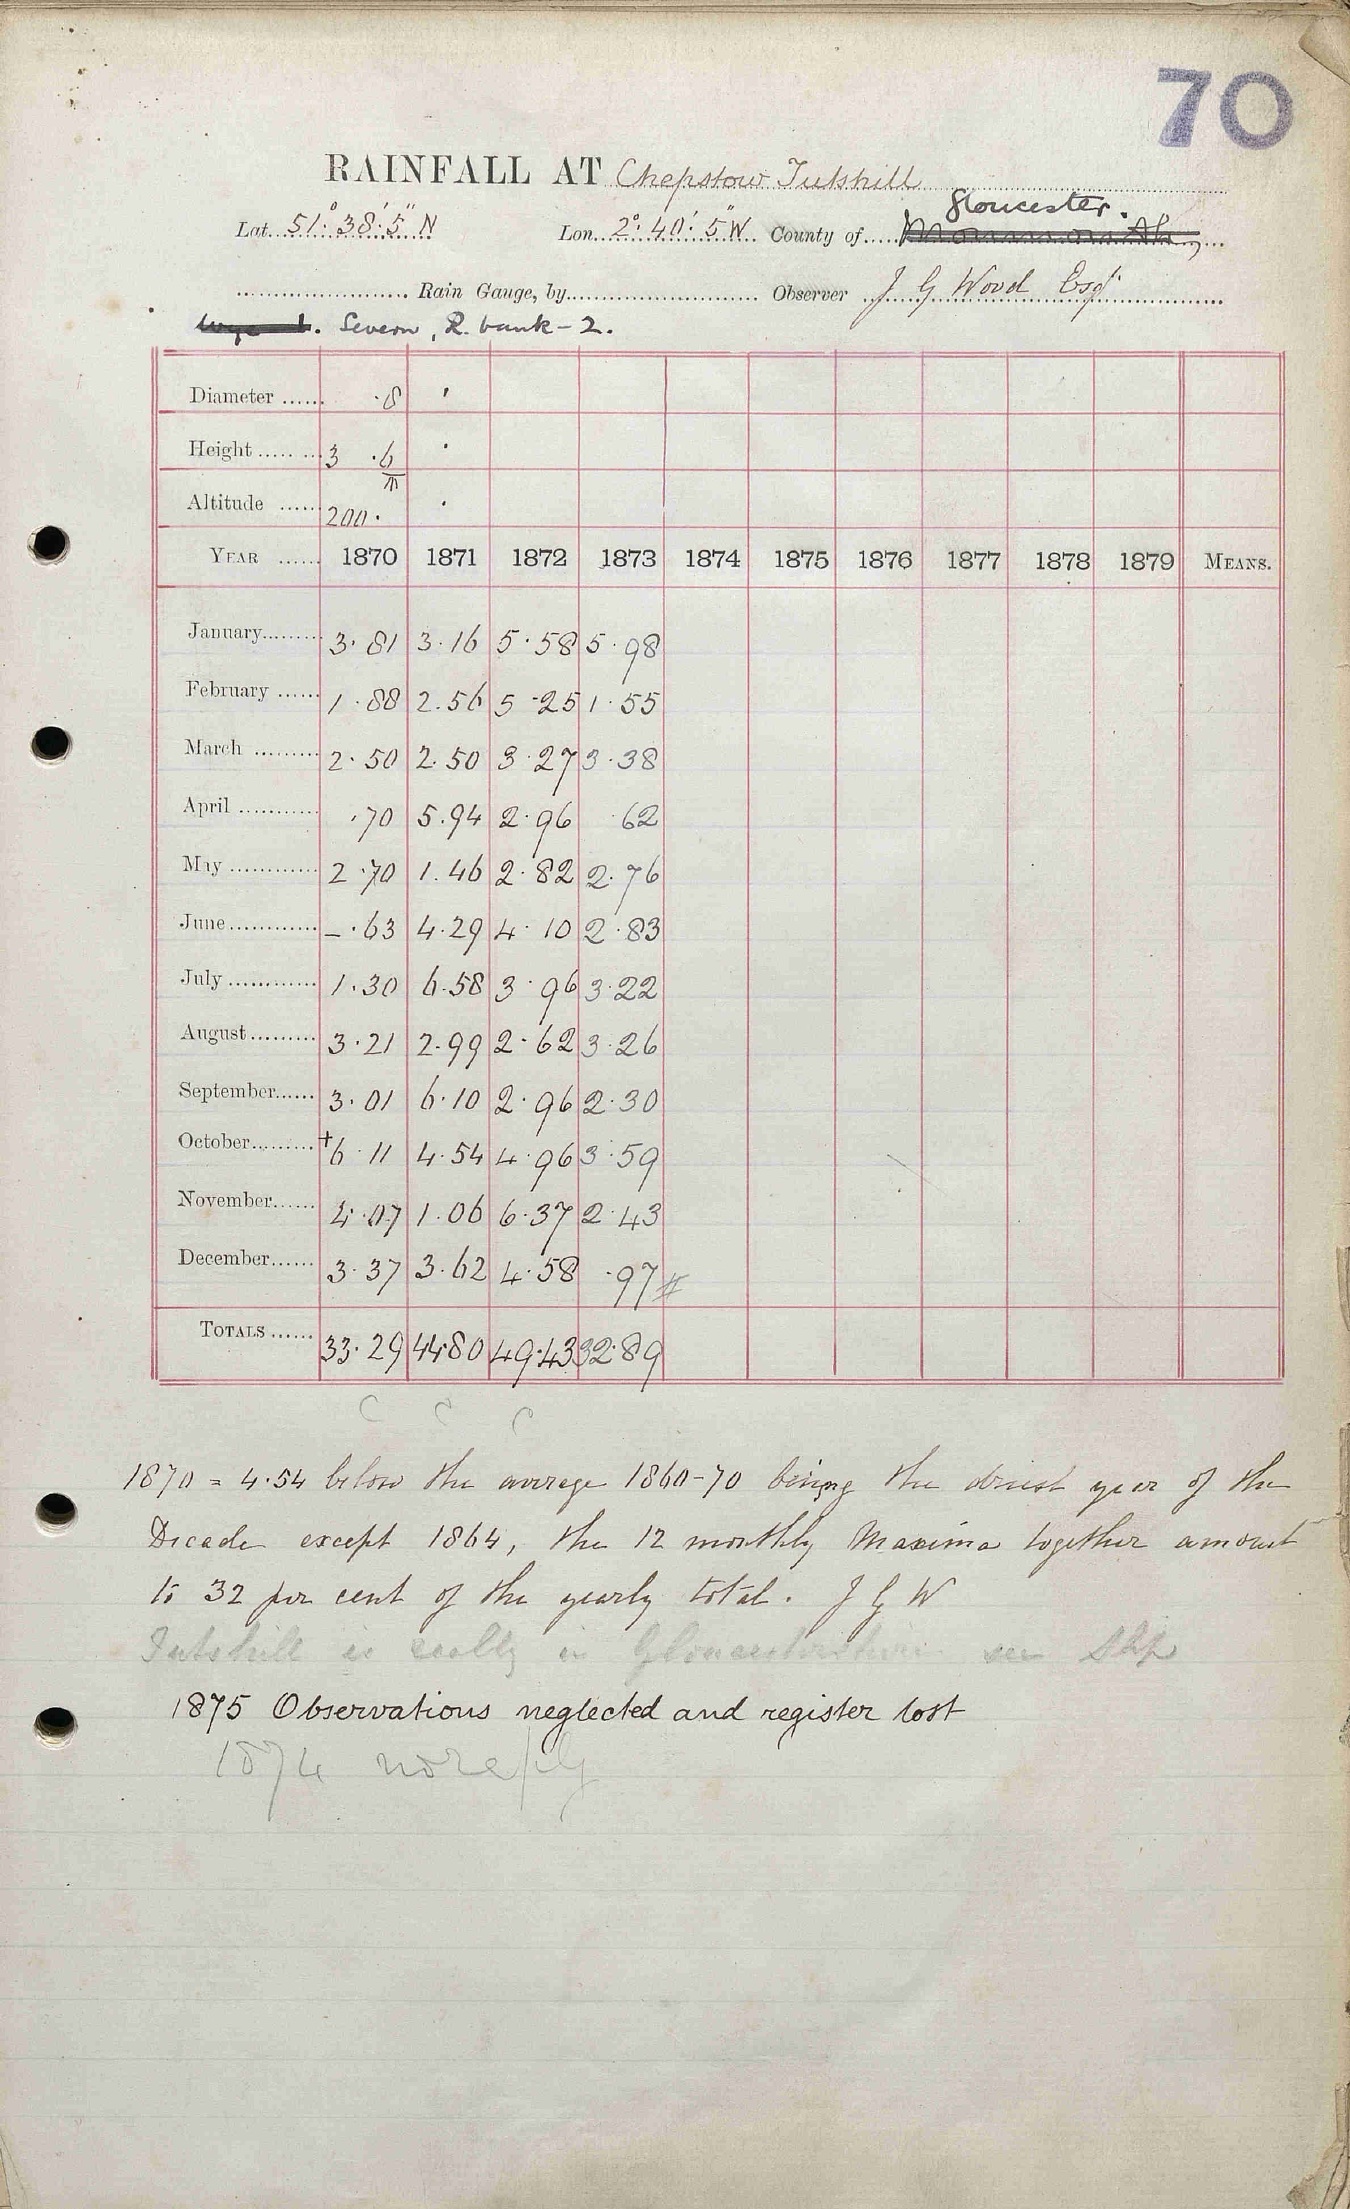 70
RAINFALL AT Chepstow Tutshill
Gloucester.
Lat. 51° 38' 5" N Lon. 2° 40' 5" W County of Monmouth
Rain Gauge, by Observer J G Wood Esqr
Wye 1. Severn, R. bank - 2.
Diameter ...... .8 '
Height ...... 3 .6 .
Altitude ...... 200. .
YEAR ...... 1870 1871 1872 1873 1874 1875 1876 1877 1878 1879 MEANS.
January 3.81 3.16 5.58 5.98
February 1.88 2.56 5.25 1.55
March 2.50 2.50 3.27 3.38
April .70 5.94 2.96 .62
May 2.70 1.46 2.82 2.76
June -.63 4.29 4.10 2.83
July 1.30 6.58 3.96 3.22
August 3.21 2.99 2.62 3.26
September 3.01 6.10 2.96 2.30
October +6.11 4.54 4.96 3.59
November 4.07 1.06 6.37 2.43
December 3.37 3.62 4.58 .97 #
TOTALS 33.29 44.80 49.43 32.89
C C C
1870 = 4.54 below the average 1860-70 being the driest year of the
Decade except 1864, the 12 monthly Maxima together amount
to 32 per cent of the yearly total. J G W
Tutshill is really in Gloucestershire see Slip
1875 Observations neglected and register lost
1874 no reply